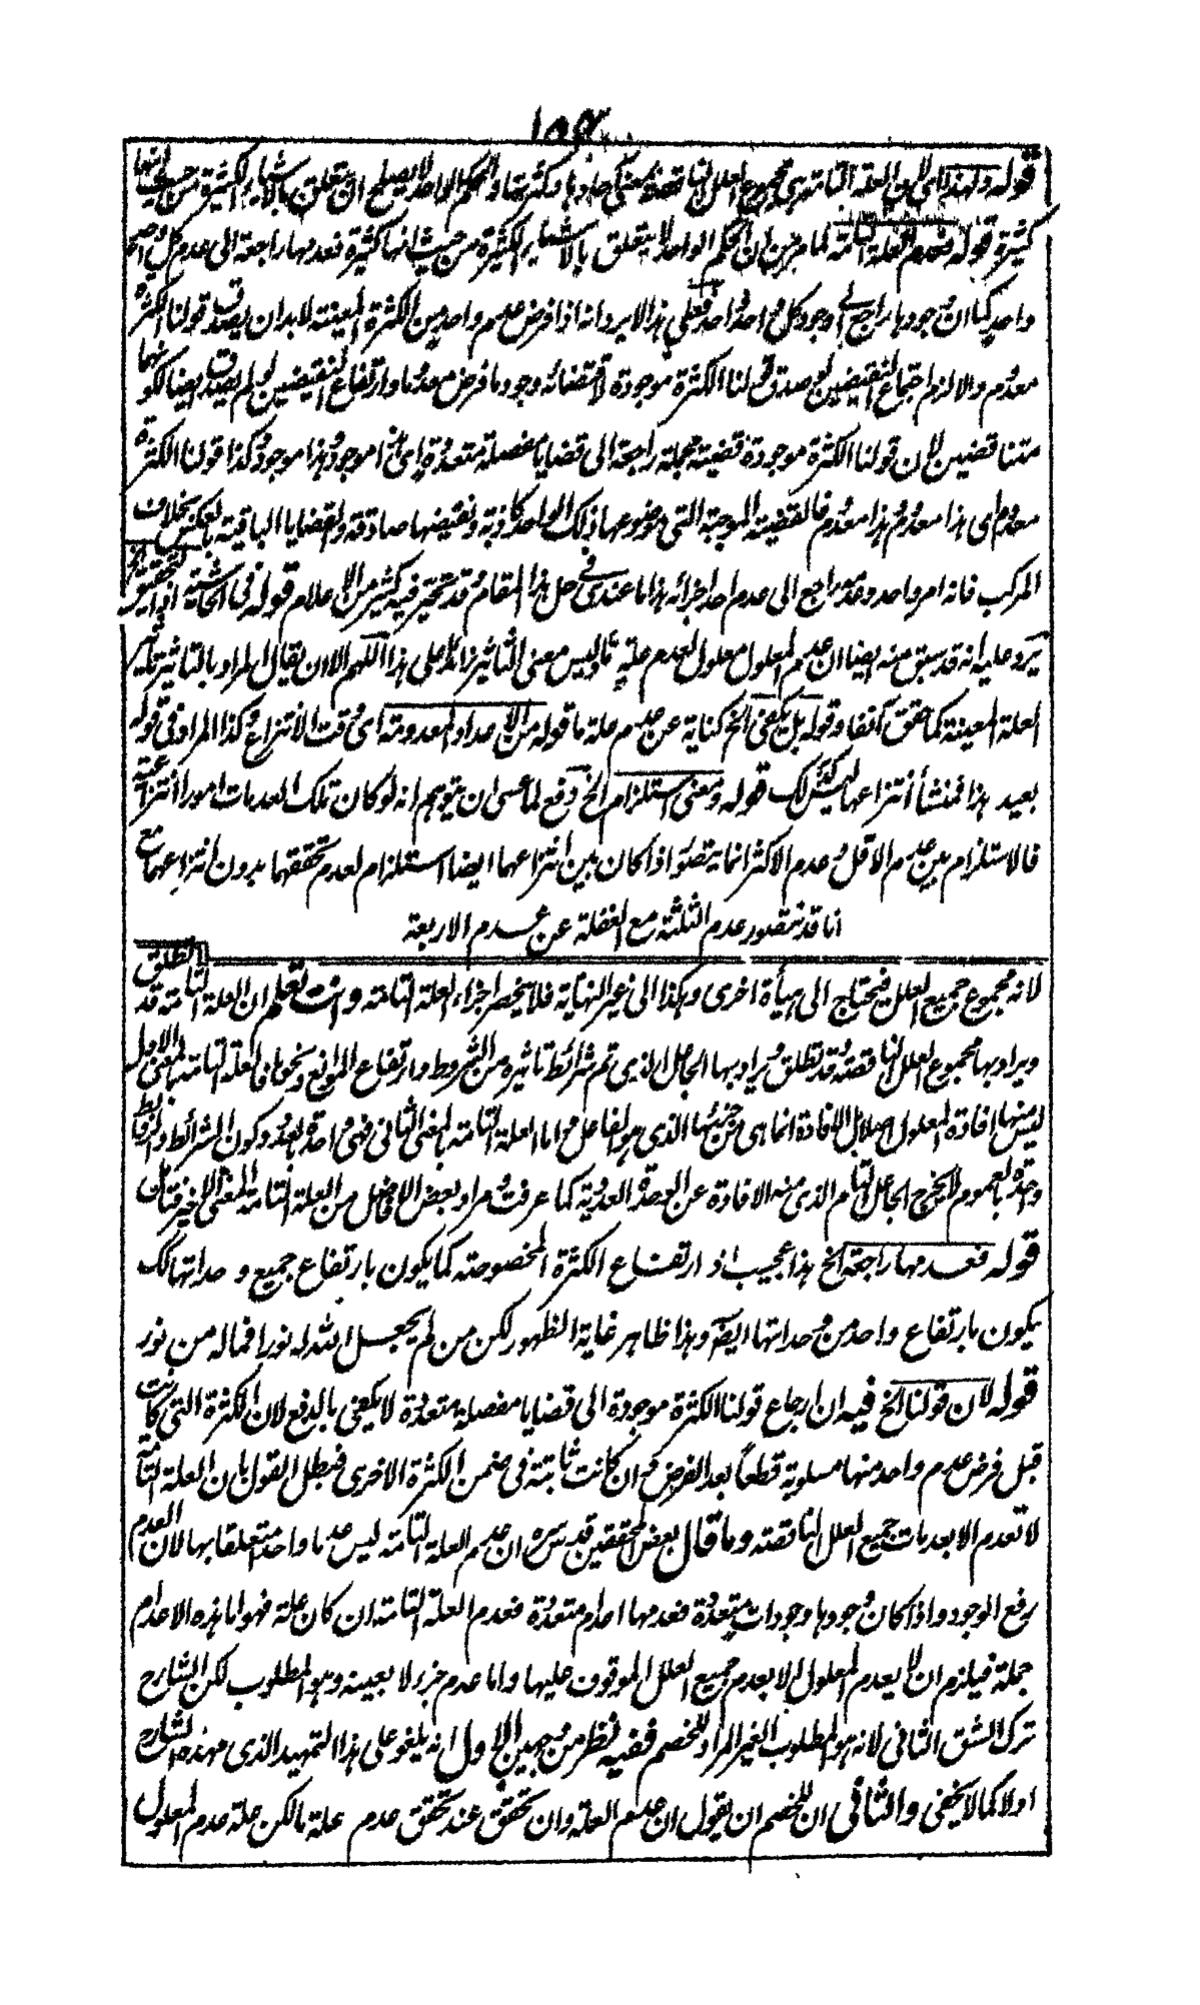 ١٥٤
قوله ولهذا اي لان العلة التامة هي مجموع العلل الناقصة بمعنى آحادها وكثرتها والحكم الواحد لا يصلح ان يتعلق بالاشياء الكثيرة من حيث انها
كثيرة قوله فعدم العلة التامة لما مر من ان الحكم الواحد لا يتعلق بالاشياء الكثيرة من حيث انها كثيرة فعدمها راجعة الى عدم كل واحد
واحد كما ان وجودها راجع الى وجود كل واحد واحد فعلى هذا لا يرد انه اذا فرض عدم واحد من الكثرة المعينة لا بد ان يصدق قولنا الكثرة
معدوم والا لزم اجتماع النقيضين لو صدق قولنا الكثرة موجودة لاقتضائه وجود ما فرض معدوما وارتفاع النقيضين لو لم يصدق ايضا لكونهما
متناقضين لان قولنا الكثرة موجودة قضية مجملة راجعة الى قضايا مفصلة متعددة اي هذا موجود وهذا موجود وكذا قولنا الكثرة
معدوم اى هذا معدوم وهذا معدوم فالقضية الموجبة التي موضوعها ذلك الواحد كاذبة ونقيضها صادقة والقضايا الباقية بالعكس بخلاف
المركب فانه امر واحد وعدمه راجع الى عدم احد اجزائه هذا ما عندى في حل هذا المقام وقد تحير فيه كثير من الاعلام قوله في الحاشية اذ التحقيق
يرد عليه انه قد سبق منه ايضا ان عدم المعلول معلول لعدم علة ما وليس معنى التاثير زائدا على هذا اللهم الا ان يقال المراد بالتاثير تاثير
العلة المعينة كما حقق آنفا وقوله بل يكفى الخ كناية عن عدم علة ما قوله من الاعداد المعدومة اى وقت الانتزاع وكذا المراد في قوله
بعيد هذا فمنشأ انتزاعها ليس كذلك قوله ومعنى استلزام الخ دفع لما عسى ان يتوهم انه لو كان تلك العدمات امورا انتزاعية
فالاستلزام بين عدم الاقل وعدم الاكثر انما يتصور اذا كان بين انتزاعهما ايضا استلزام لعدم تحققهما بدون انتزاعهما مع
انا قد نتصور عدم الثلثة مع الغفلة عن عدم الاربعة
لانه مجموع جميع العلل فيحتاج الى هيأة اخرى وهكذا الى غير النهاية فلا ينحصر اجزاء العلة التامة وانت تعلم ان العلة التامة قد تطلق
ويراد بها مجموع العلل الناقصة وقد تطلق ويراد بها الجاعل الذي تم شرائط تاثيره من الشروط وارتفاع الموانع ونحوها فالعلة التامة بالمعنى الاول
ليس منها افادة المعلول اصلا بل الافادة انما هي من جزئها الذى هو الفاعل واما العلة التامة بالمعنى الثاني فهي واحدة بالعدد وكون الشرائط والروابط
وحدة بالعموم لا يخرج الجاعل التام الذى منه الافادة عن الوحدة العددية كما عرفت ومراد بعض الافاضل من العلة التامة المعنى الاخير فتأمل
قوله فعدمها راجعة الخ هذا عجيب اذ ارتفاع الكثرة المخصوصة كما يكون بارتفاع جميع وحداتها كذلك
يكون بارتفاع واحد من وحداتها ايضا وهذا ظاهر غاية الظهور لكن من لم يجعل الله له نورا فما له من نور
قوله لان قولنا الخ فيه ان ارجاع قولنا الكثرة موجودة الى قضايا مفصلة متعددة لا يكفي بالدفع لان الكثرة التي كانت
قبل فرض عدم واحد منها مسلوبة قطعا بعد الفرض وان كانت ثابتة في ضمن الكثرة الاخرى فبطل القول بان العلة التامة
لا تعدم الا بعدمات جميع العلل الناقصة وما قال بعض المحققين قدس سره ان عدم العلة التامة ليس عدما واحدا متعلقا بها لان العدم
رفع الوجود واذا كان وجودها وجودات متعددة فعدمها اعدام متعددة فعدم العلة التامة ان كان علة فهو اما هذه الاعدام
جملة فيلزم ان لا يعدم المعلول الا بعدم جميع العلل الموقوف عليها واما عدم جزء لا بعينه وهو المطلوب لكن الشارح
ترك الشق الثاني لانه هو المطلوب الغير المراد للخصم ففيه نظر من وجهين الاول انه يلغو على هذا التمهيد الذى مهده الشارح
اولا كما لا يخفى والثاني ان للخصم ان يقول ان عدم العلة وان تحقق عند تحقق عدم علة ما لكن علة عدم المعلول